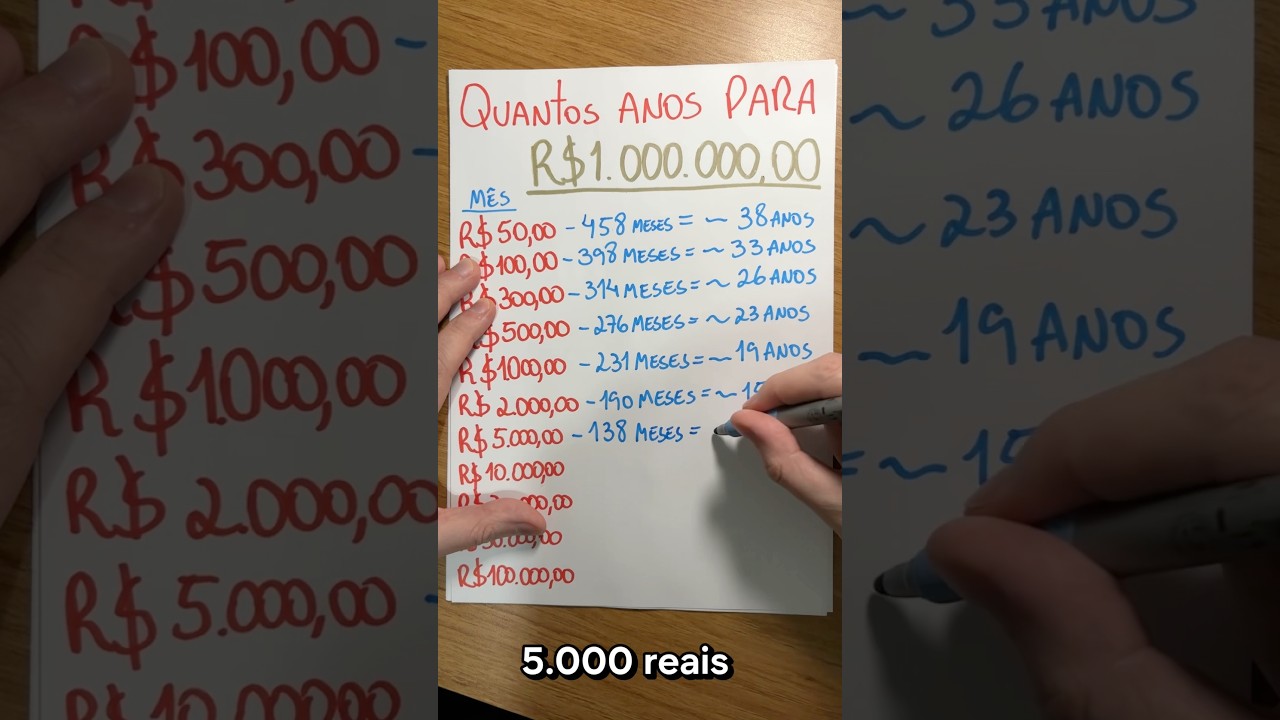 QUANTOS ANOS PARA
R$1.000.000,00
MÊS
R$ 50,00 - 458 MESES = ~ 38 ANOS
R$100,00 - 398 MESES = ~ 33 ANOS
R$300,00 - 314 MESES = ~ 26 ANOS
R$500,00 - 276 MESES = ~ 23 ANOS
R$1000,00 - 231 MESES = ~ 19 ANOS
R$ 2.000,00 - 190 MESES = ~ 15
R$ 5.000,00 - 138 MESES =
R$ 10.000,00
R$100.000,00
5.000 reais